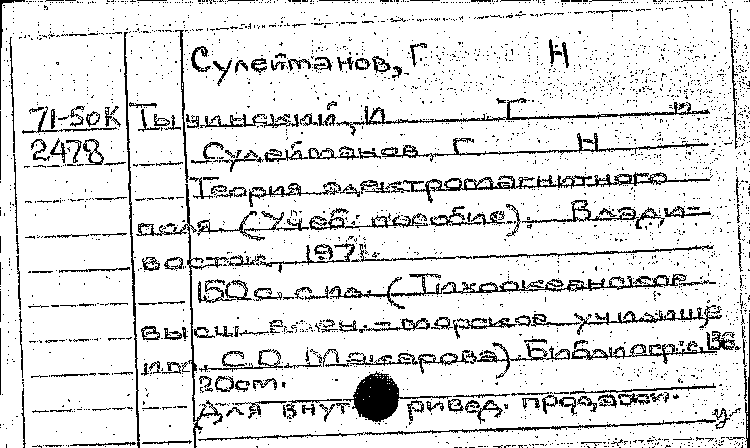 Сулейманов, Г Н
71-50К Тычинский, И Т и
2478 Сулейманов, Г Н
Теория электромагнитного
поля. (Учеб. пособие). Влади-
восток, 1971.
150с. с ил. (Тихоокеанское
высш. воен.-морское училище
им. С.О. Макарова). Библиогр.: с. 136.
20см.
Для внут ривед. продажи.